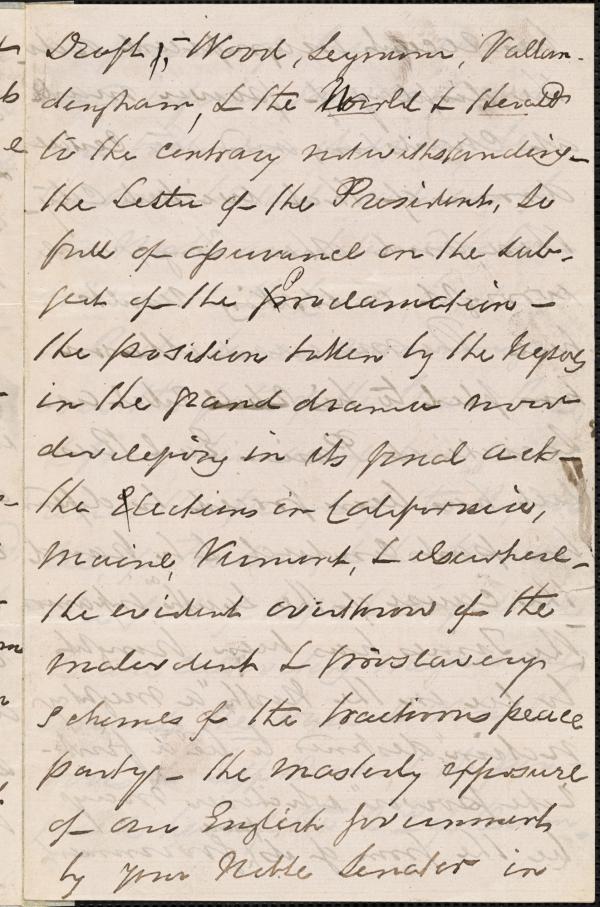 Draft, Wood, Seymour, Vallan-
dingham, & the World & Herald
to the contrary notwithstanding -
the Letter of the President, so
full of assurance on the sub-
ject of the Proclamation -
the position taken by the Negroes
in the grand drama now
developing in its final act -
the Elections in California,
Maine, Vermont, & elsewhere -
the evident overthrow of the
malevolent & proslavery
schemes of the traitorous peace
party - the masterly exposure
of our English Government
by your Noble Senator in